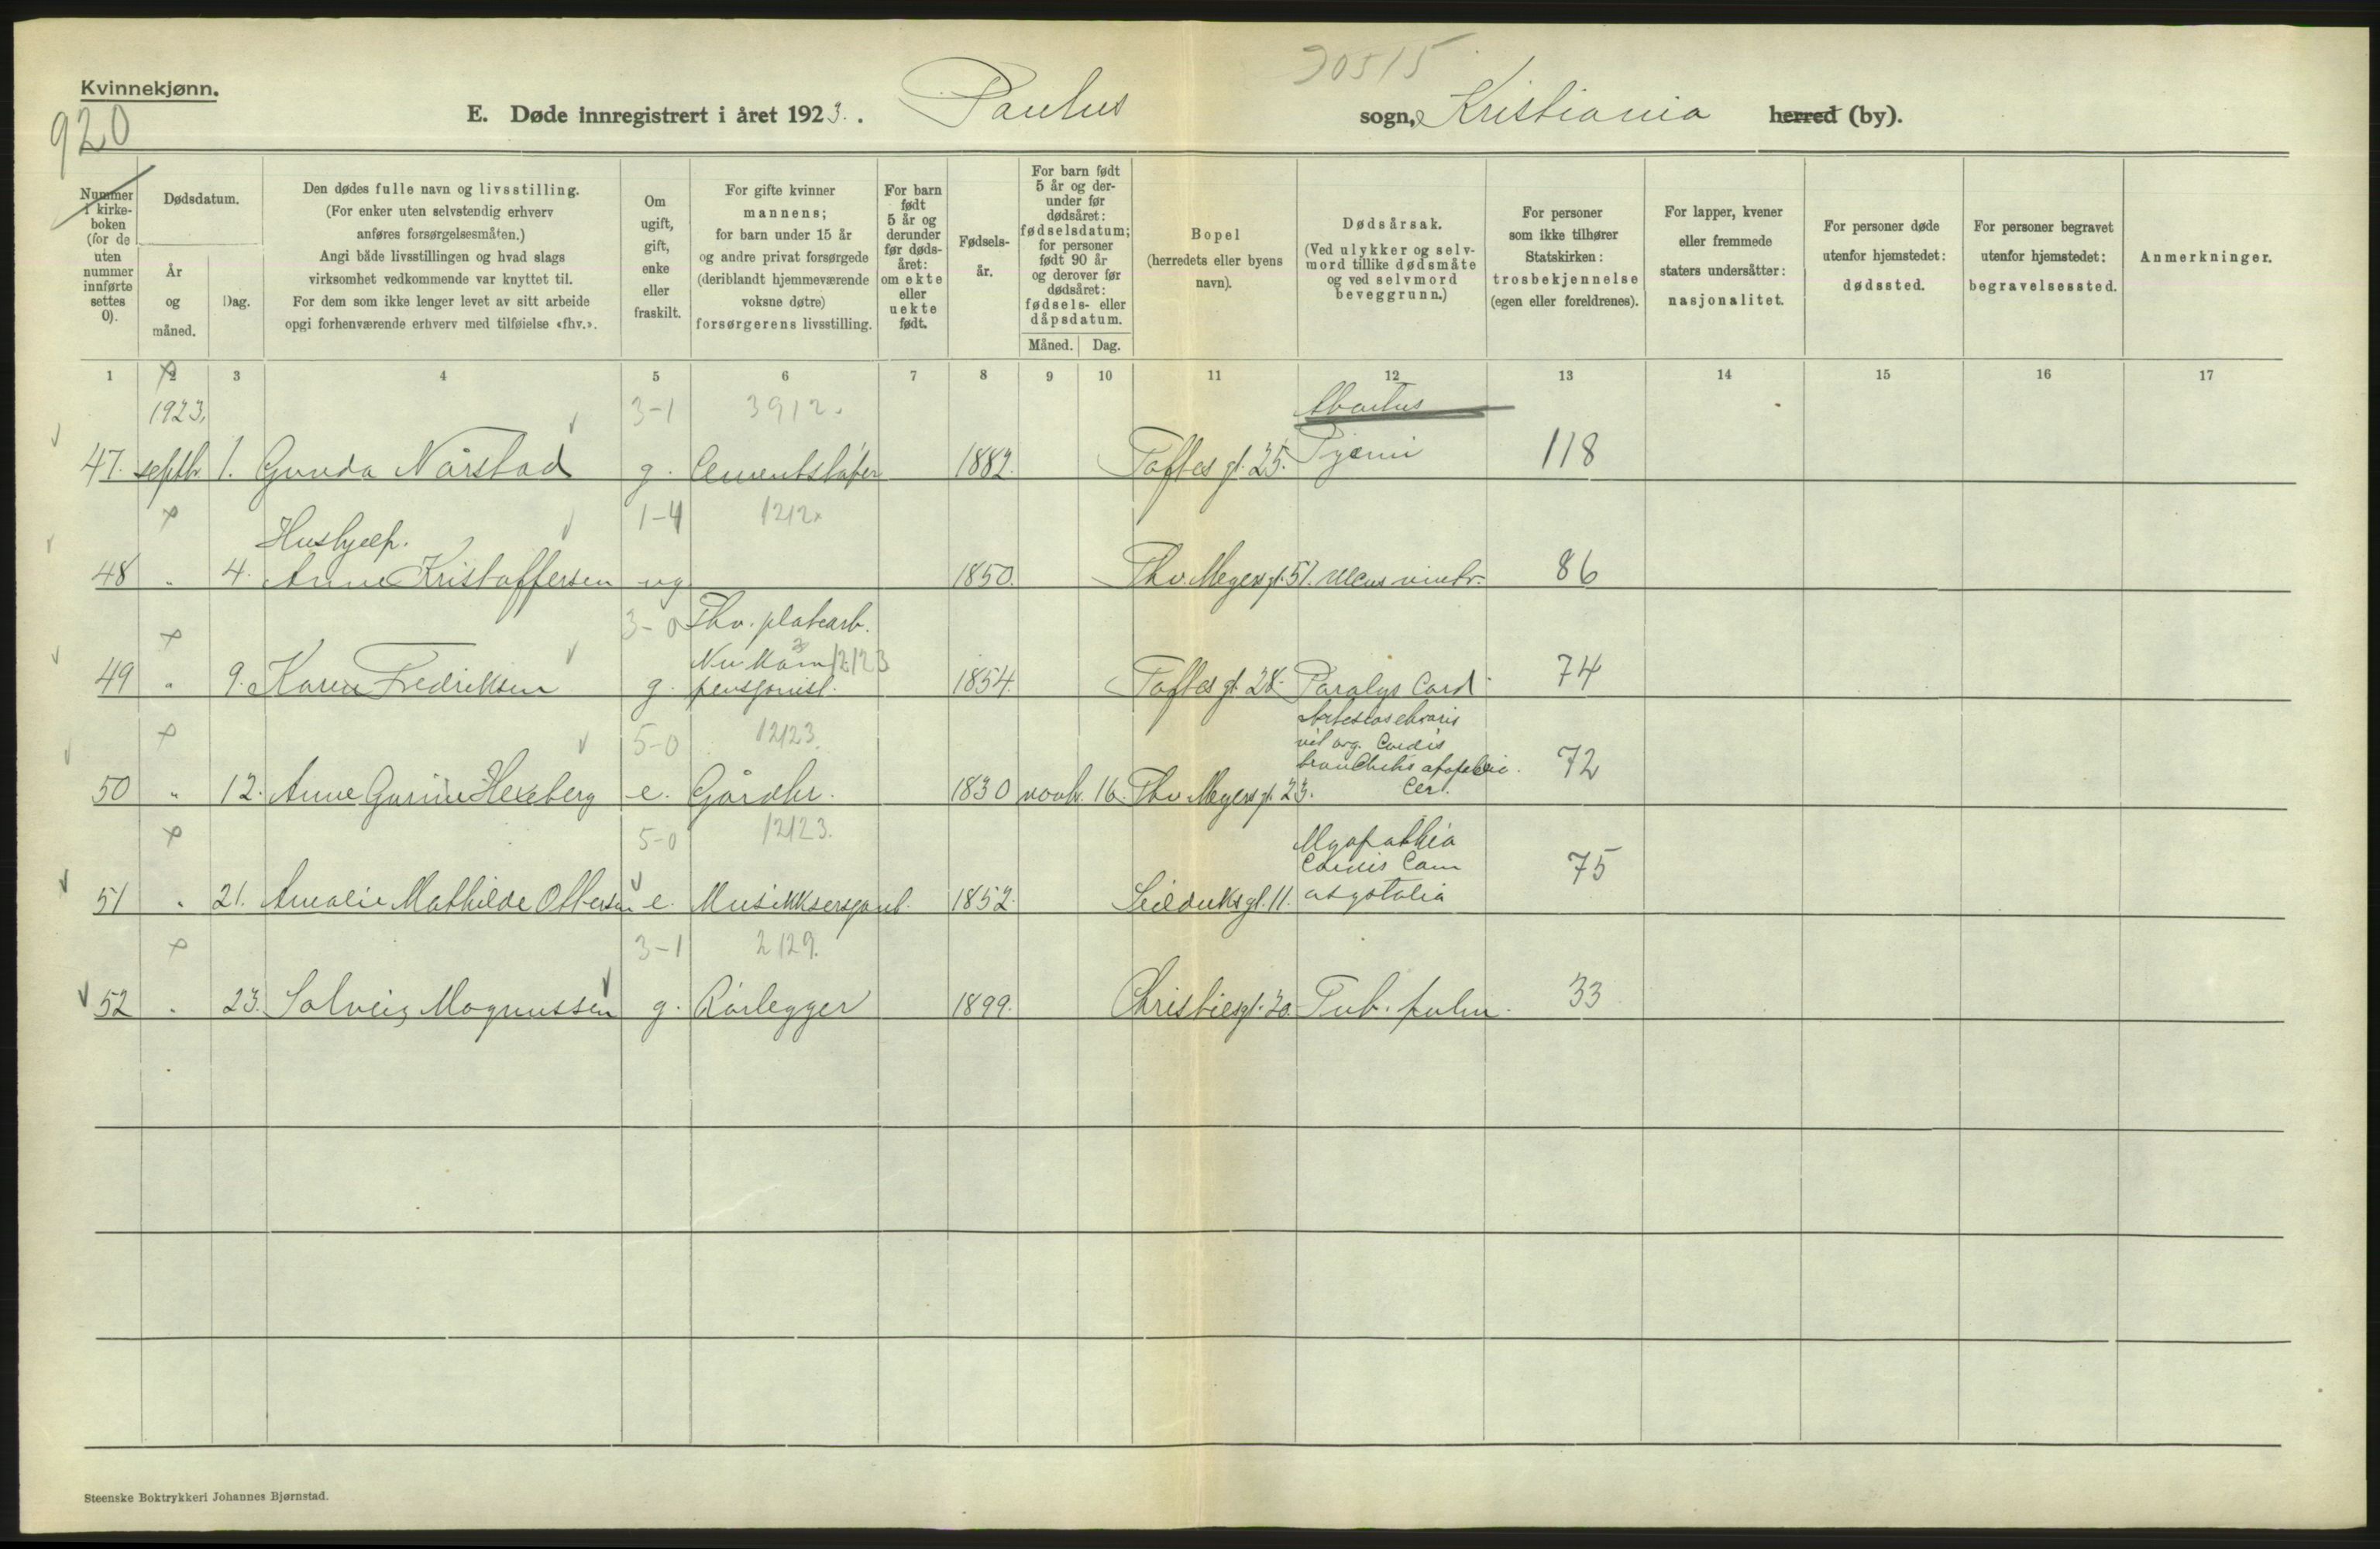 Kvinnekjønn.
920
E. Døde innregistrert i året 1923. Paulus sogn, Kristiania herred (by).
30515
Nummer i kirke-boken (for de uten nummer innførte settes 0).
Dødsdatum.
År og måned.
Dag.
Den dødes fulle navn og livsstilling.
(For enker uten selvstendig erhverv
anføres forsørgelsesmåten.)
Angi både livsstillingen og hvad slags
virksomhet vedkommende var knyttet til.
For dem som ikke lenger levet av sitt arbeide
opgi forhenværende erhverv med tilføielse «fhv.».
Om ugift, gift, enke eller fraskilt.
For gifte kvinner
mannens;
for barn under 15 år
og andre privat forsørgede
(deriblandt hjemmeværende
voksne døtre)
forsørgerens livsstilling.
For barn født 5 år og derunder før døds-året: om ekte eller uekte født.
Fødsels-år.
For barn født 5 år og der-under før dødsåret: fødselsdatum; for personer født 90 år og derover før dødsåret: fødsels- eller dåpsdatum.
Måned. Dag.
Bopel
(herredets eller byens
navn).
Dødsårsak.
(Ved ulykker og selv-
mord tillike dødsmåte
og ved selvmord
beveggrunn.)
For personer
som ikke tilhører
Statskirken:
trosbekjennelse
(egen eller foreldrenes).
For lapper, kvener
eller fremmede
staters undersåtter:
nasjonalitet.
For personer døde
utenfor hjemstedet:
dødssted.
For personer begravet
utenfor hjemstedet:
begravelsessted.
Anmerkninger.
1 2 3 4 5 6 7 8 9 10 11 12 13 14 15 16 17
1923. 3-1 3912. Abortus
47. septb. 1. Gunda Nårstad g. Cementstøber 1882. Toftes gt. 25. Pyemi 118
1-4 1212
Hushjelp.
48 " 4. Anne Kristoffersen ug 1850. Thv. Meyers gt. 51. Ulcus ventr. 86
3-0 Fhv. platearb.
Nu kom 12123
49 " 9. Karen Fredriksen g. pensjonist. 1854. Toftes gt. 28. Paralys Card. 74
5-0 12123. vit org. Cordis
50 " 12. Anne Gurine Hexeberg e. Gårdbr. 1830 novb. 16. Thv Meyers gt. 23. Cer. 72
5-0 12123. Myopathia
Cordis Cum
51 " 21. Amalie Mathilde Ottersen e. Musikksersjant. 1852. Seilduksgt. 11. asystolia 75
3-1 2129.
52 " 23. Solveig Magnussen g. Rørlegger 1899. Christiesgt. 30. Tub. pulm. 33
Steenske Boktrykkeri Johannes Bjørnstad.